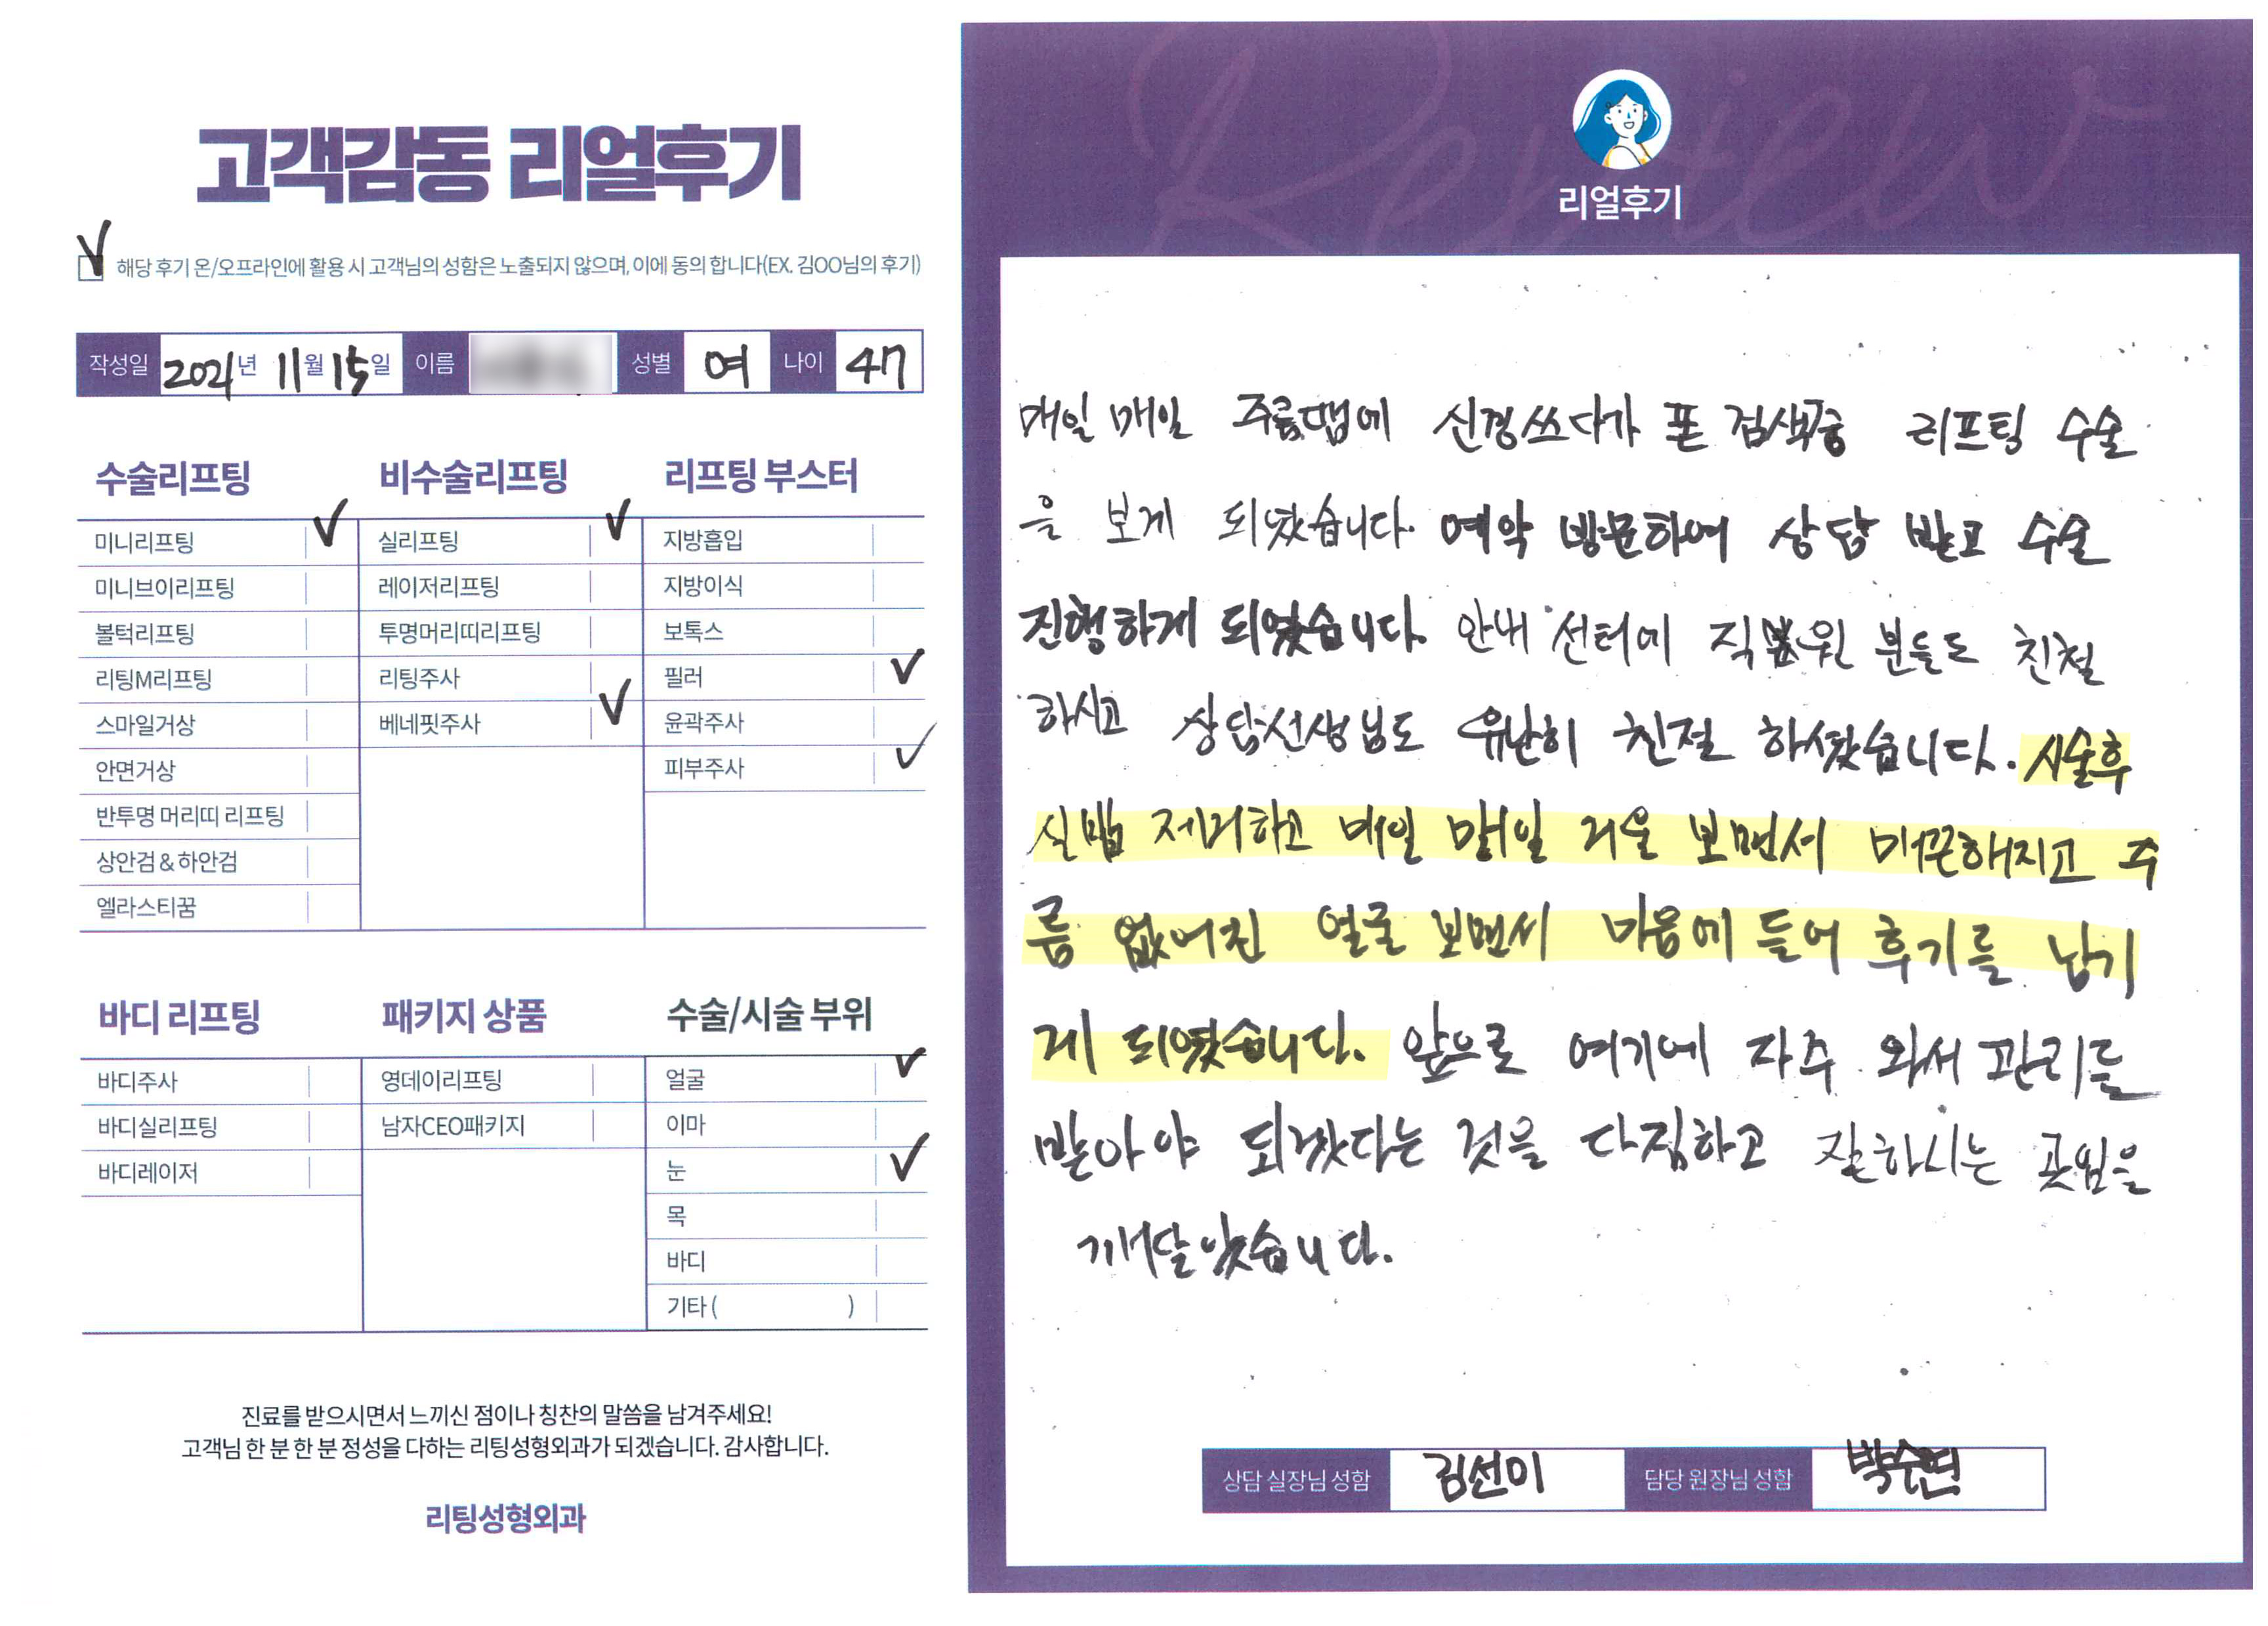 고객감동 리얼후기
✓ 해당 후기 온/오프라인에 활용 시 고객님의 성함은 노출되지 않으며, 이에 동의 합니다(EX. 김OO님의 후기)
작성일 2021년 11월 15일 이름 성별 여 나이 47
수술리프팅 비수술리프팅 리프팅 부스터
미니리프팅 ✓ 실리프팅 ✓ 지방흡입
미니브이리프팅 레이저리프팅 지방이식
볼턱리프팅 투명머리띠리프팅 보톡스
리팅M리프팅 리팅주사 필러 ✓
스마일거상 베네핏주사 ✓ 윤곽주사
안면거상 피부주사 ✓
반투명 머리띠 리프팅
상안검&하안검
엘라스티꿈
바디 리프팅 패키지 상품 수술/시술 부위
바디주사 영데이리프팅 얼굴 ✓
바디실리프팅 남자CEO패키지 이마
바디레이저 눈 ✓
목
바디
기타 ( )
진료를 받으시면서 느끼신 점이나 칭찬의 말씀을 남겨주세요!
고객님 한 분 한 분 정성을 다하는 리팅성형외과가 되겠습니다. 감사합니다.
리팅성형외과
Review
리얼후기
매일 매일 주름땜에 신경쓰다가 폰 검색중 리프팅 수술
을 보게 되었습니다. 예약 방문하여 상담 받고 수술
진행하게 되였습니다. 안내 센터에 직원 분들도 친절
하시고 상담선생님도 유난히 친절 하셨습니다. 시술후
실밥 제거하고 매일 매일 거울 보면서 매끈해지고 주
름 없어진 얼굴 보면서 마음에 들어 후기를 남기
게 되였습니다. 앞으로 여기에 자주 와서 관리를
받아야 되겠다는 것을 다짐하고 잘하시는 곳임을
깨달았습니다.
상담 실장님 성함 김선미 담당 원장님 성함 박수연